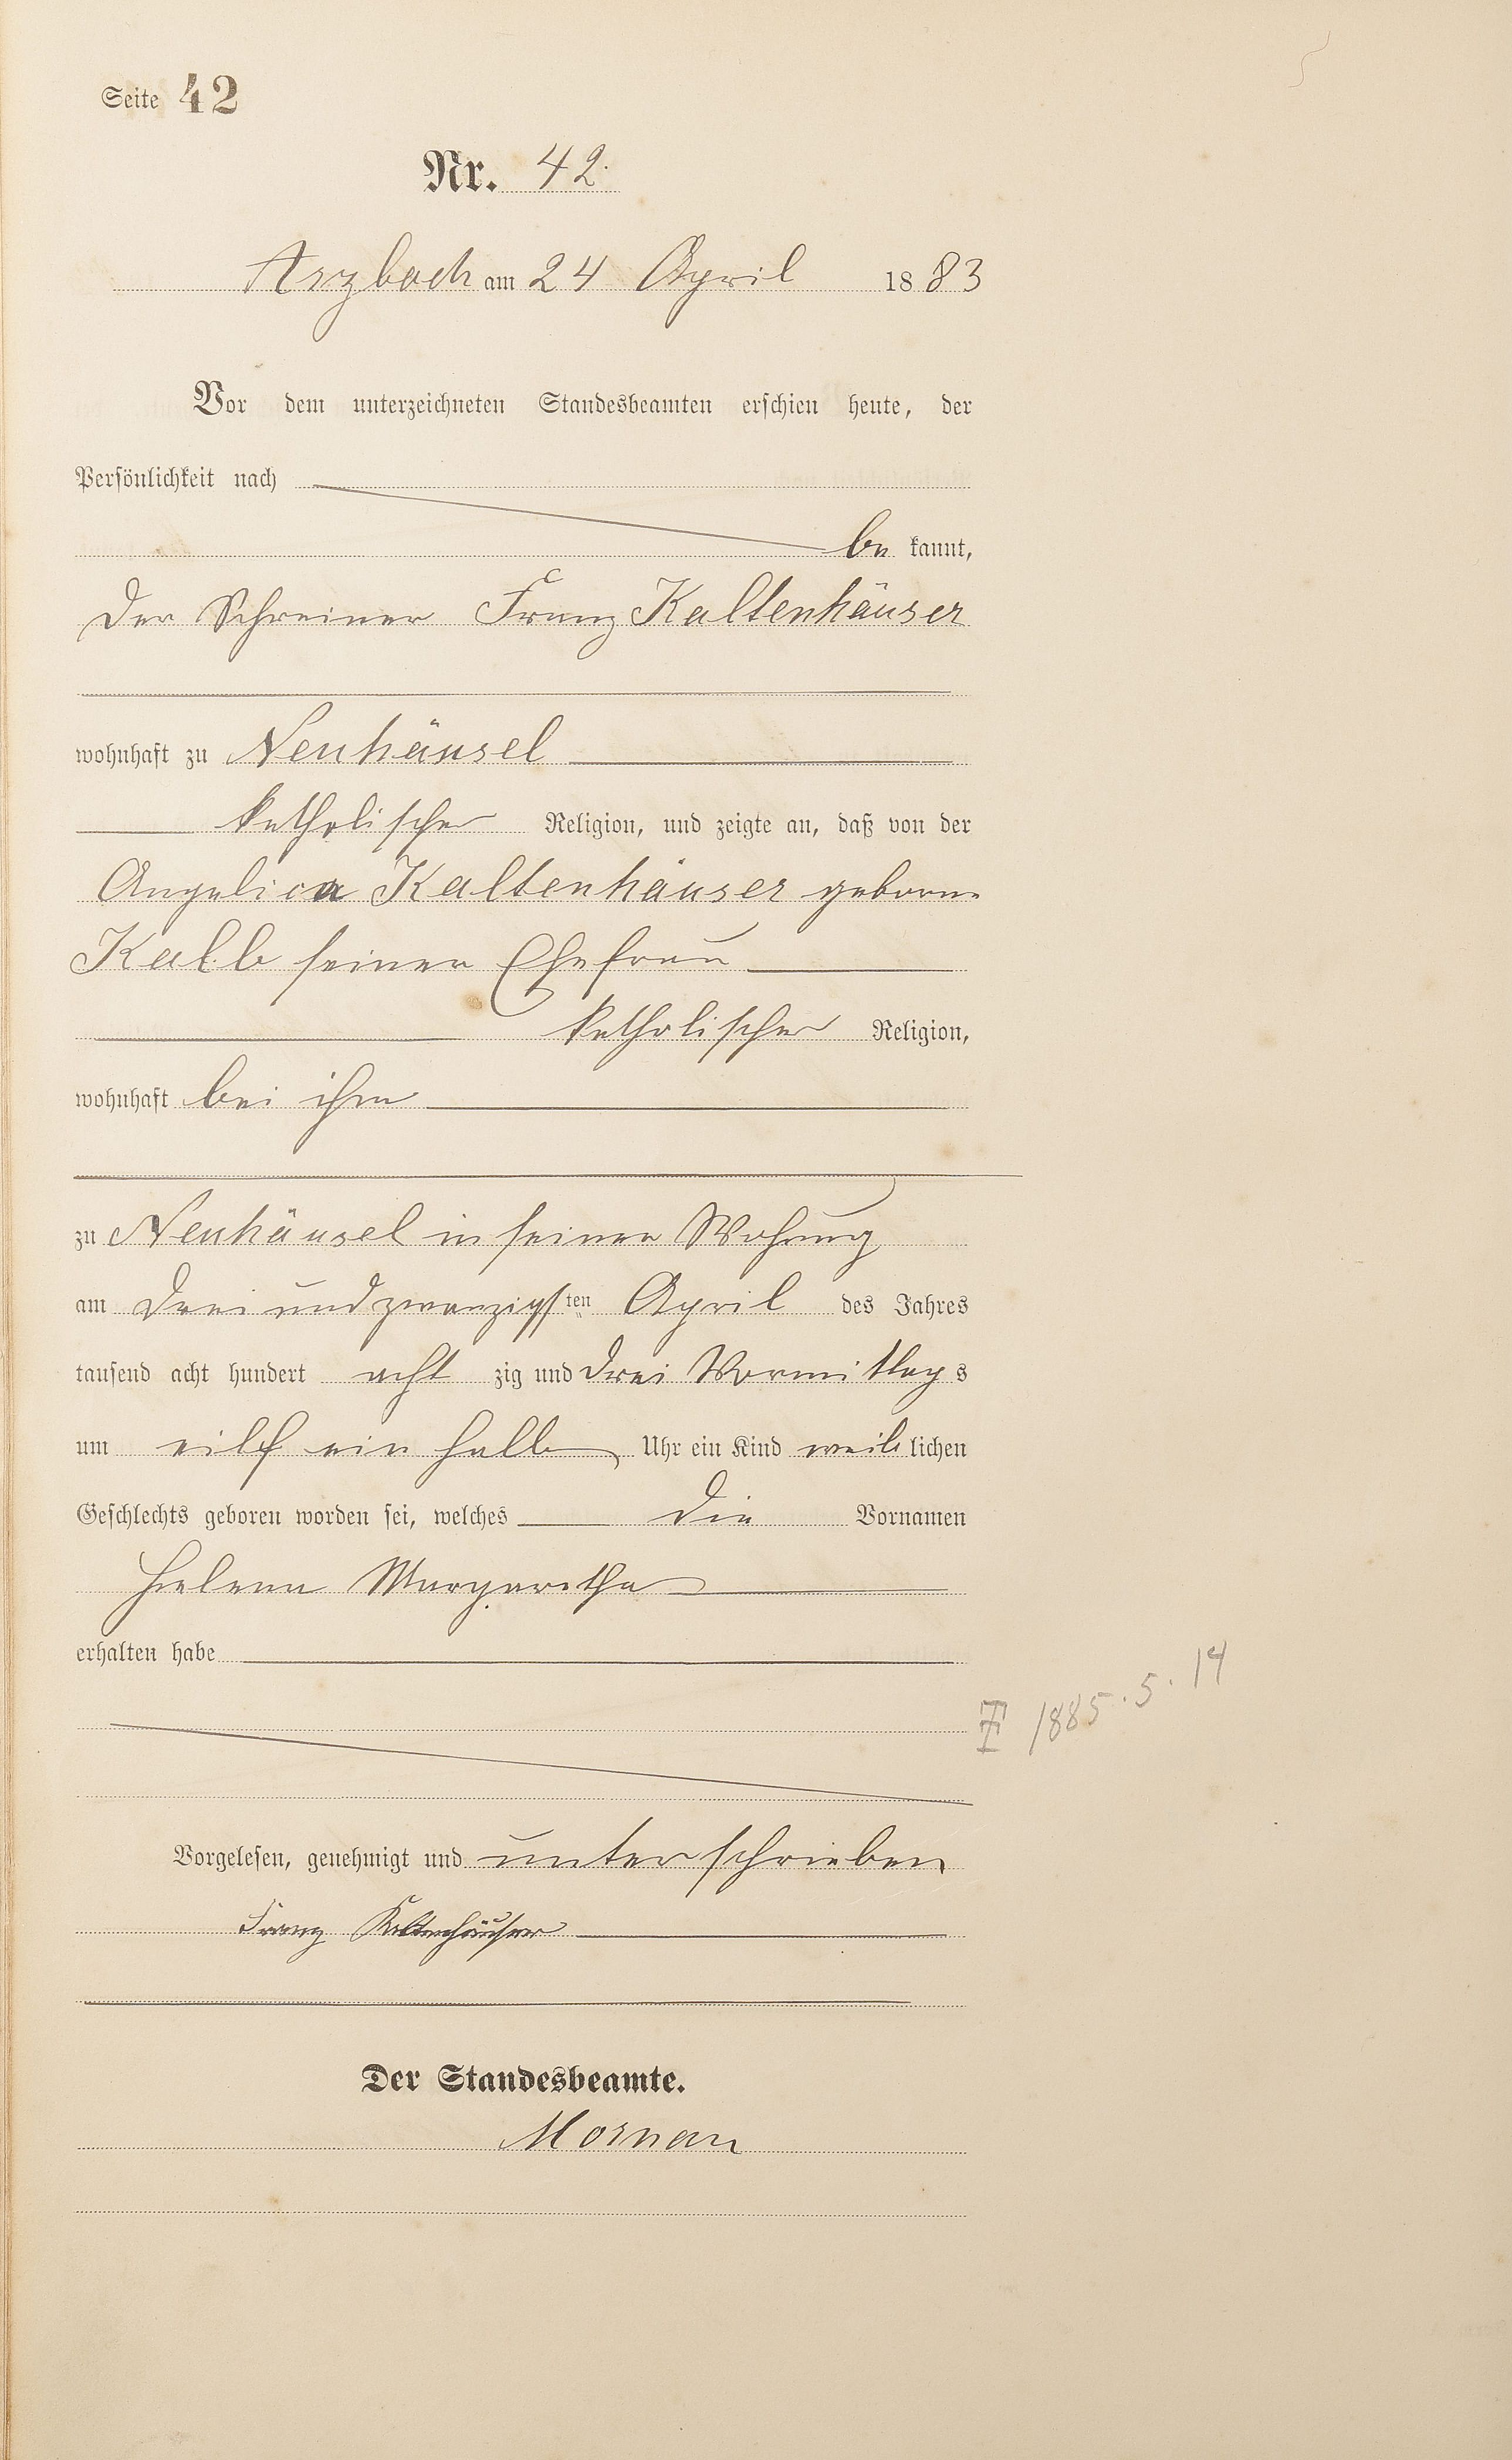 Seite 42
Nr. 42.
Arzbach am 24 April 1883
Vor dem unterzeichneten Standesbeamten erschien heute, der
Persönlichkeit nach
be kannt,
der Schreiner Franz Kaltenhäuser
wohnhaft zu Neuhäusel
katholischer Religion, und zeigte an, daß von der
Angelica Kaltenhäuser geborne
Kalb seiner Ehefrau
katholischer Religion,
wohnhaft bei ihm
zu Neuhäusel in seiner Wohnung
am drei und zwanzigsten April des Jahres
tausend acht hundert acht zig und drei Vormittags
um eilf ein halb Uhr ein Kind weib lichen
Geschlechts geboren worden sei, welches die Vornamen
Helena Margaretha
erhalten habe
1885. 5. 14
Vorgelesen, genehmigt und unterschrieben
Franz Kaltenhäuser
Der Standesbeamte.